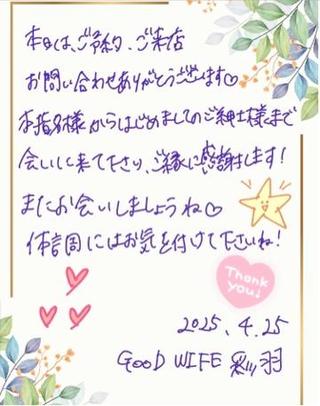 本日は、ご予約、ご来店
お問い合わせありがとうございます♡
本指名様からはじめましてのご紳士様まで
会いに来て下さり、ご縁に感謝します!
またお会いしましょうね♡
体調面にはお気を付けて下さいね!
Thank you!
2025.4.25
GOOD WIFE 彩羽